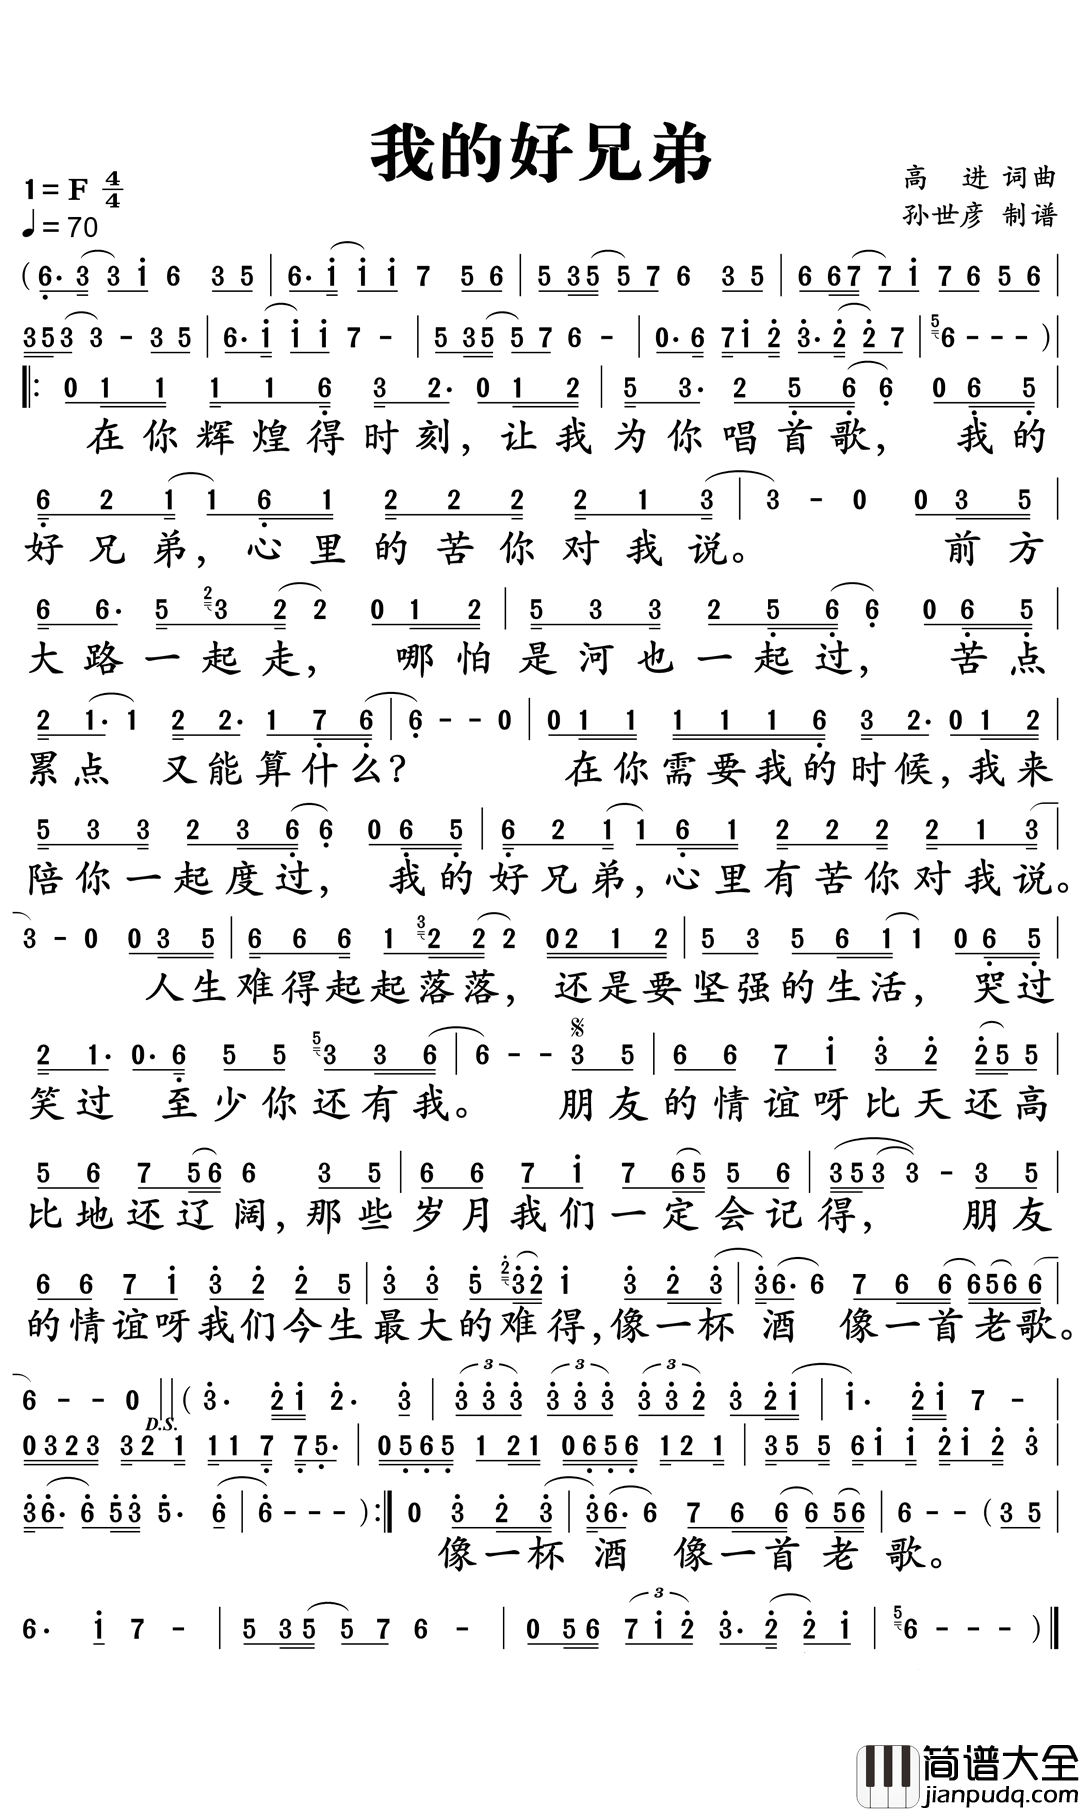 我的好兄弟
1=F 4/4
高 进 词曲
♩=70
孙世彦 制谱
(6· 3 3 1 6 3 5 | 6· 1 1 1 7 5 6 | 5 3 5 5 7 6 3 5 | 6 6 7 7 1 7 6 5 6 |
3 5 3 3 - 3 5 | 6· 1 1 1 7 - | 5 3 5 5 7 6 - | 0· 6 7 1 2 3· 2 2 7 | 5 6 - - - )
‖: 0 1 1 1 1 6 3 2· 0 1 2 | 5 3· 2 5 6 6 0 6 5 |
在你辉煌得时刻,让我为你唱首歌, 我的
6 2 1 1 6 1 2 2 2 2 1 3 | 3 - 0 0 3 5 |
好兄弟,心里的苦你对我说。 前方
6 6· 5 2 3 2 2 0 1 2 | 5 3 3 2 5 6 6 0 6 5 |
大路一起走, 哪怕是河也一起过, 苦点
2 1· 1 2 2· 1 7 6 | 6 - - 0 | 0 1 1 1 1 1 6 3 2· 0 1 2 |
累点 又能算什么? 在你需要我的时候,我来
5 3 3 2 3 6 6 0 6 5 | 6 2 1 1 6 1 2 2 2 2 1 3 |
陪你一起度过, 我的好兄弟,心里有苦你对我说。
3 - 0 0 3 5 | 6 6 6 1 3 2 2 2 0 2 1 2 | 5 3 5 6 1 1 0 6 5 |
人生难得起起落落, 还是要坚强的生活, 哭过
2 1· 0· 6 5 5 5 3 3 6 | 6 - - 𝄋 3 5 | 6 6 7 1 3 2 2 5 5 |
笑过 至少你还有我。 朋友的情谊呀比天还高
5 6 7 5 6 6 3 5 | 6 6 7 1 7 6 5 5 6 | 3 5 3 3 - 3 5 |
比地还辽阔,那些岁月我们一定会记得, 朋友
6 6 7 1 3 2 2 5 | 3 3 5 2 3 2 1 3 2 3 | 3 6· 6 7 6 6 6 5 6 6 |
的情谊呀我们今生最大的难得,像一杯 酒 像一首老歌。
6 - - 0 ‖ ( 3· 2 1 2· 3 | 3 3 3 3 3 3 3 3 2 3 2 1 | 1· 2 1 7 - |
D.S.
0 3 2 3 3 2 1 1 1 7 7 5· | 0 5 6 5 1 2 1 0 6 5 6 1 2 1 | 3 5 5 6 1 1 2 1 2 3 |
3 6· 6 5 3 5· 6 | 6 - - - ) :‖ 0 3 2 3 | 3 6· 6 7 6 6 5 6 | 6 - - ( 3 5 |
像一杯 酒 像一首老歌。
6· 1 7 - | 5 3 5 5 7 6 - | 0 5 6 7 1 2 3· 2 2 1 | 5 6 - - - ) ‖
简谱大全
jianpudq.com